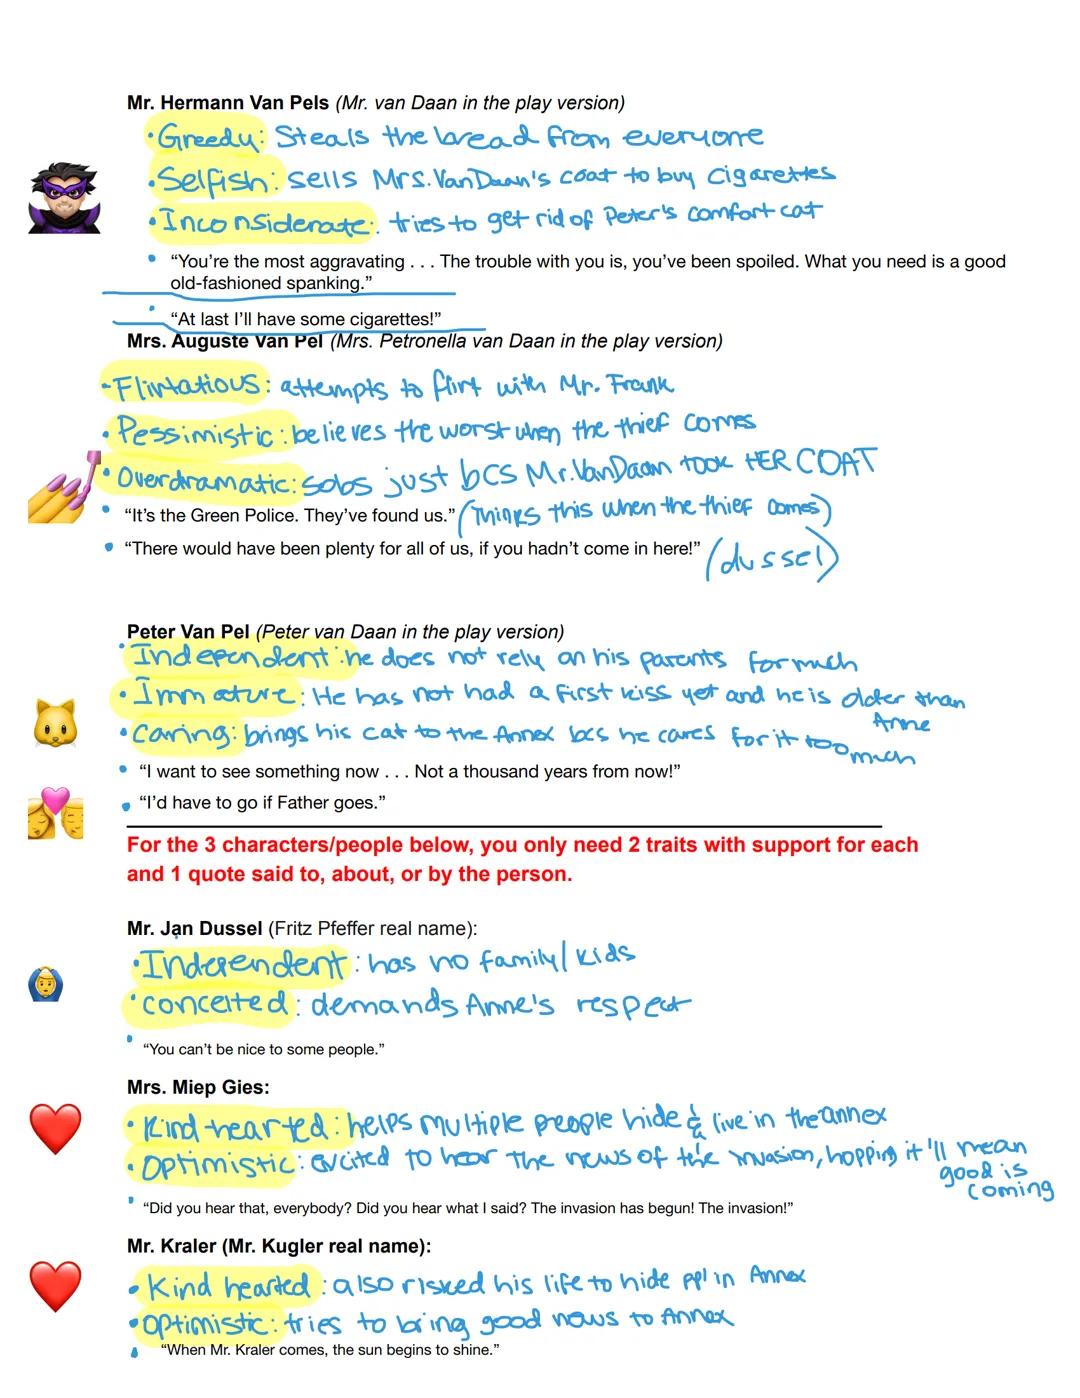 Mr. Hermann Van Pels (Mr. van Daan in the play version)
• Greedy: Steals the bread from everyone
• Selfish: sells Mrs. VanDaan's coat to buy cigarettes
• Inconsiderate: tries to get rid of Peter's comfort cat
• “You’re the most aggravating . . . The trouble with you is, you’ve been spoiled. What you need is a good
old-fashioned spanking.”
• “At last I’ll have some cigarettes!”
Mrs. Auguste Van Pel (Mrs. Petronella van Daan in the play version)
• Flirtatious: attempts to flirt with Mr. Frank
• Pessimistic: believes the worst when the thief comes
• Overdramatic: sobs just bcs Mr. VanDaan took HER COAT
• “It’s the Green Police. They’ve found us.” (Thinks this when the thief comes)
• “There would have been plenty for all of us, if you hadn’t come in here!” (dussel)
Peter Van Pel (Peter van Daan in the play version)
• Independent: he does not rely on his parents for much
• Immature: He has not had a first kiss yet and he is older than
Anne
• Caring: brings his cat to the Annex bcs he cares for it too
much
• “I want to see something now . . . Not a thousand years from now!”
• “I’d have to go if Father goes.”
For the 3 characters/people below, you only need 2 traits with support for each
and 1 quote said to, about, or by the person.
Mr. Jan Dussel (Fritz Pfeffer real name):
• Independent: has no family/kids
• conceited: demands Anne's respect
• “You can’t be nice to some people.”
Mrs. Miep Gies:
• Kind hearted: helps multiple people hide & live in the annex
• Optimistic: excited to hear the news of the invasion, hopping it'll mean
good is
coming
• “Did you hear that, everybody? Did you hear what I said? The invasion has begun! The invasion!”
Mr. Kraler (Mr. Kugler real name):
• Kind hearted: also risked his life to hide ppl in Annex
• Optimistic: tries to bring good news to Annex
• “When Mr. Kraler comes, the sun begins to shine.”